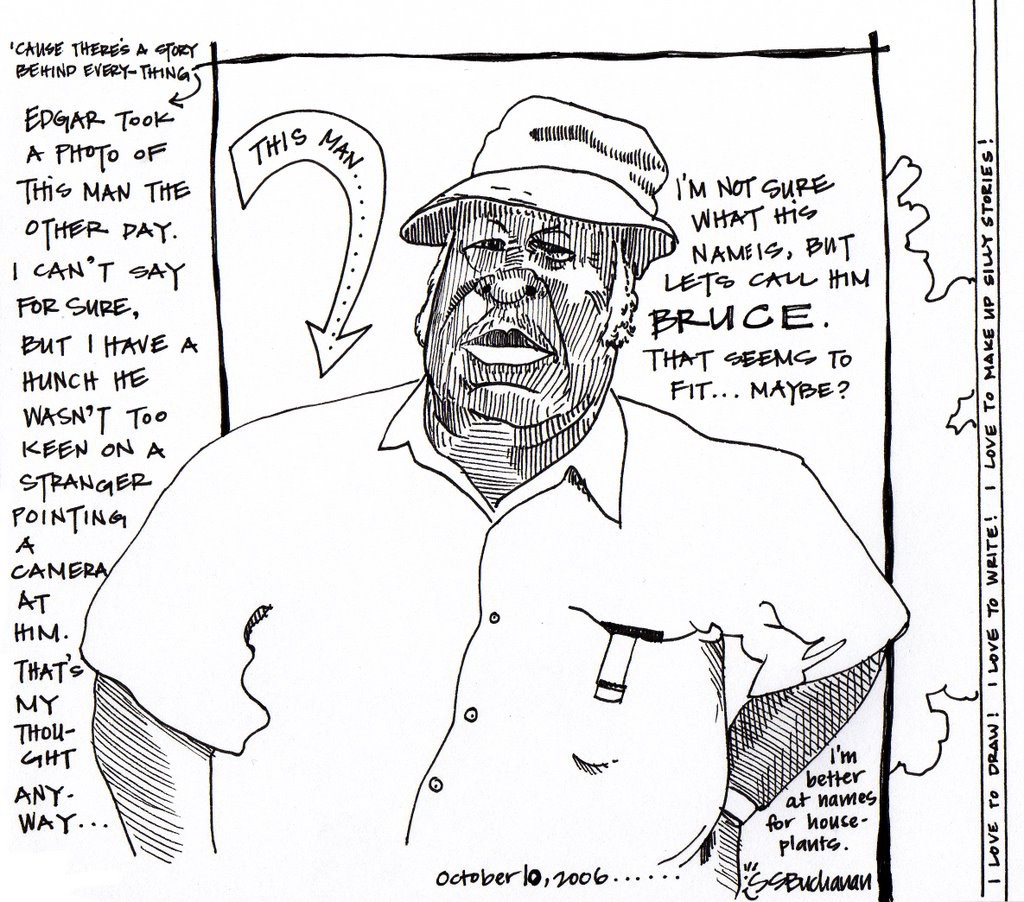 'CAUSE THERE'S A STORY
BEHIND EVERY-THING
EDGAR TOOK
A PHOTO OF
THIS MAN THE
OTHER DAY.
I CAN'T SAY
FOR SURE,
BUT I HAVE A
HUNCH HE
WASN'T TOO
KEEN ON A
STRANGER
POINTING
A
CAMERA
AT
HIM.
THAT'S
MY
THOU-
GHT
ANY-
WAY...
THIS MAN
I'M NOT SURE
WHAT HIS
NAME IS, BUT
LETS CALL HIM
BRUCE.
THAT SEEMS TO
FIT... MAYBE?
I'm
better
at names
for house-
plants.
October 10, 2006......
SSBuchanan
I LOVE TO DRAW! I LOVE TO WRITE! I LOVE TO MAKE UP SILLY STORIES!